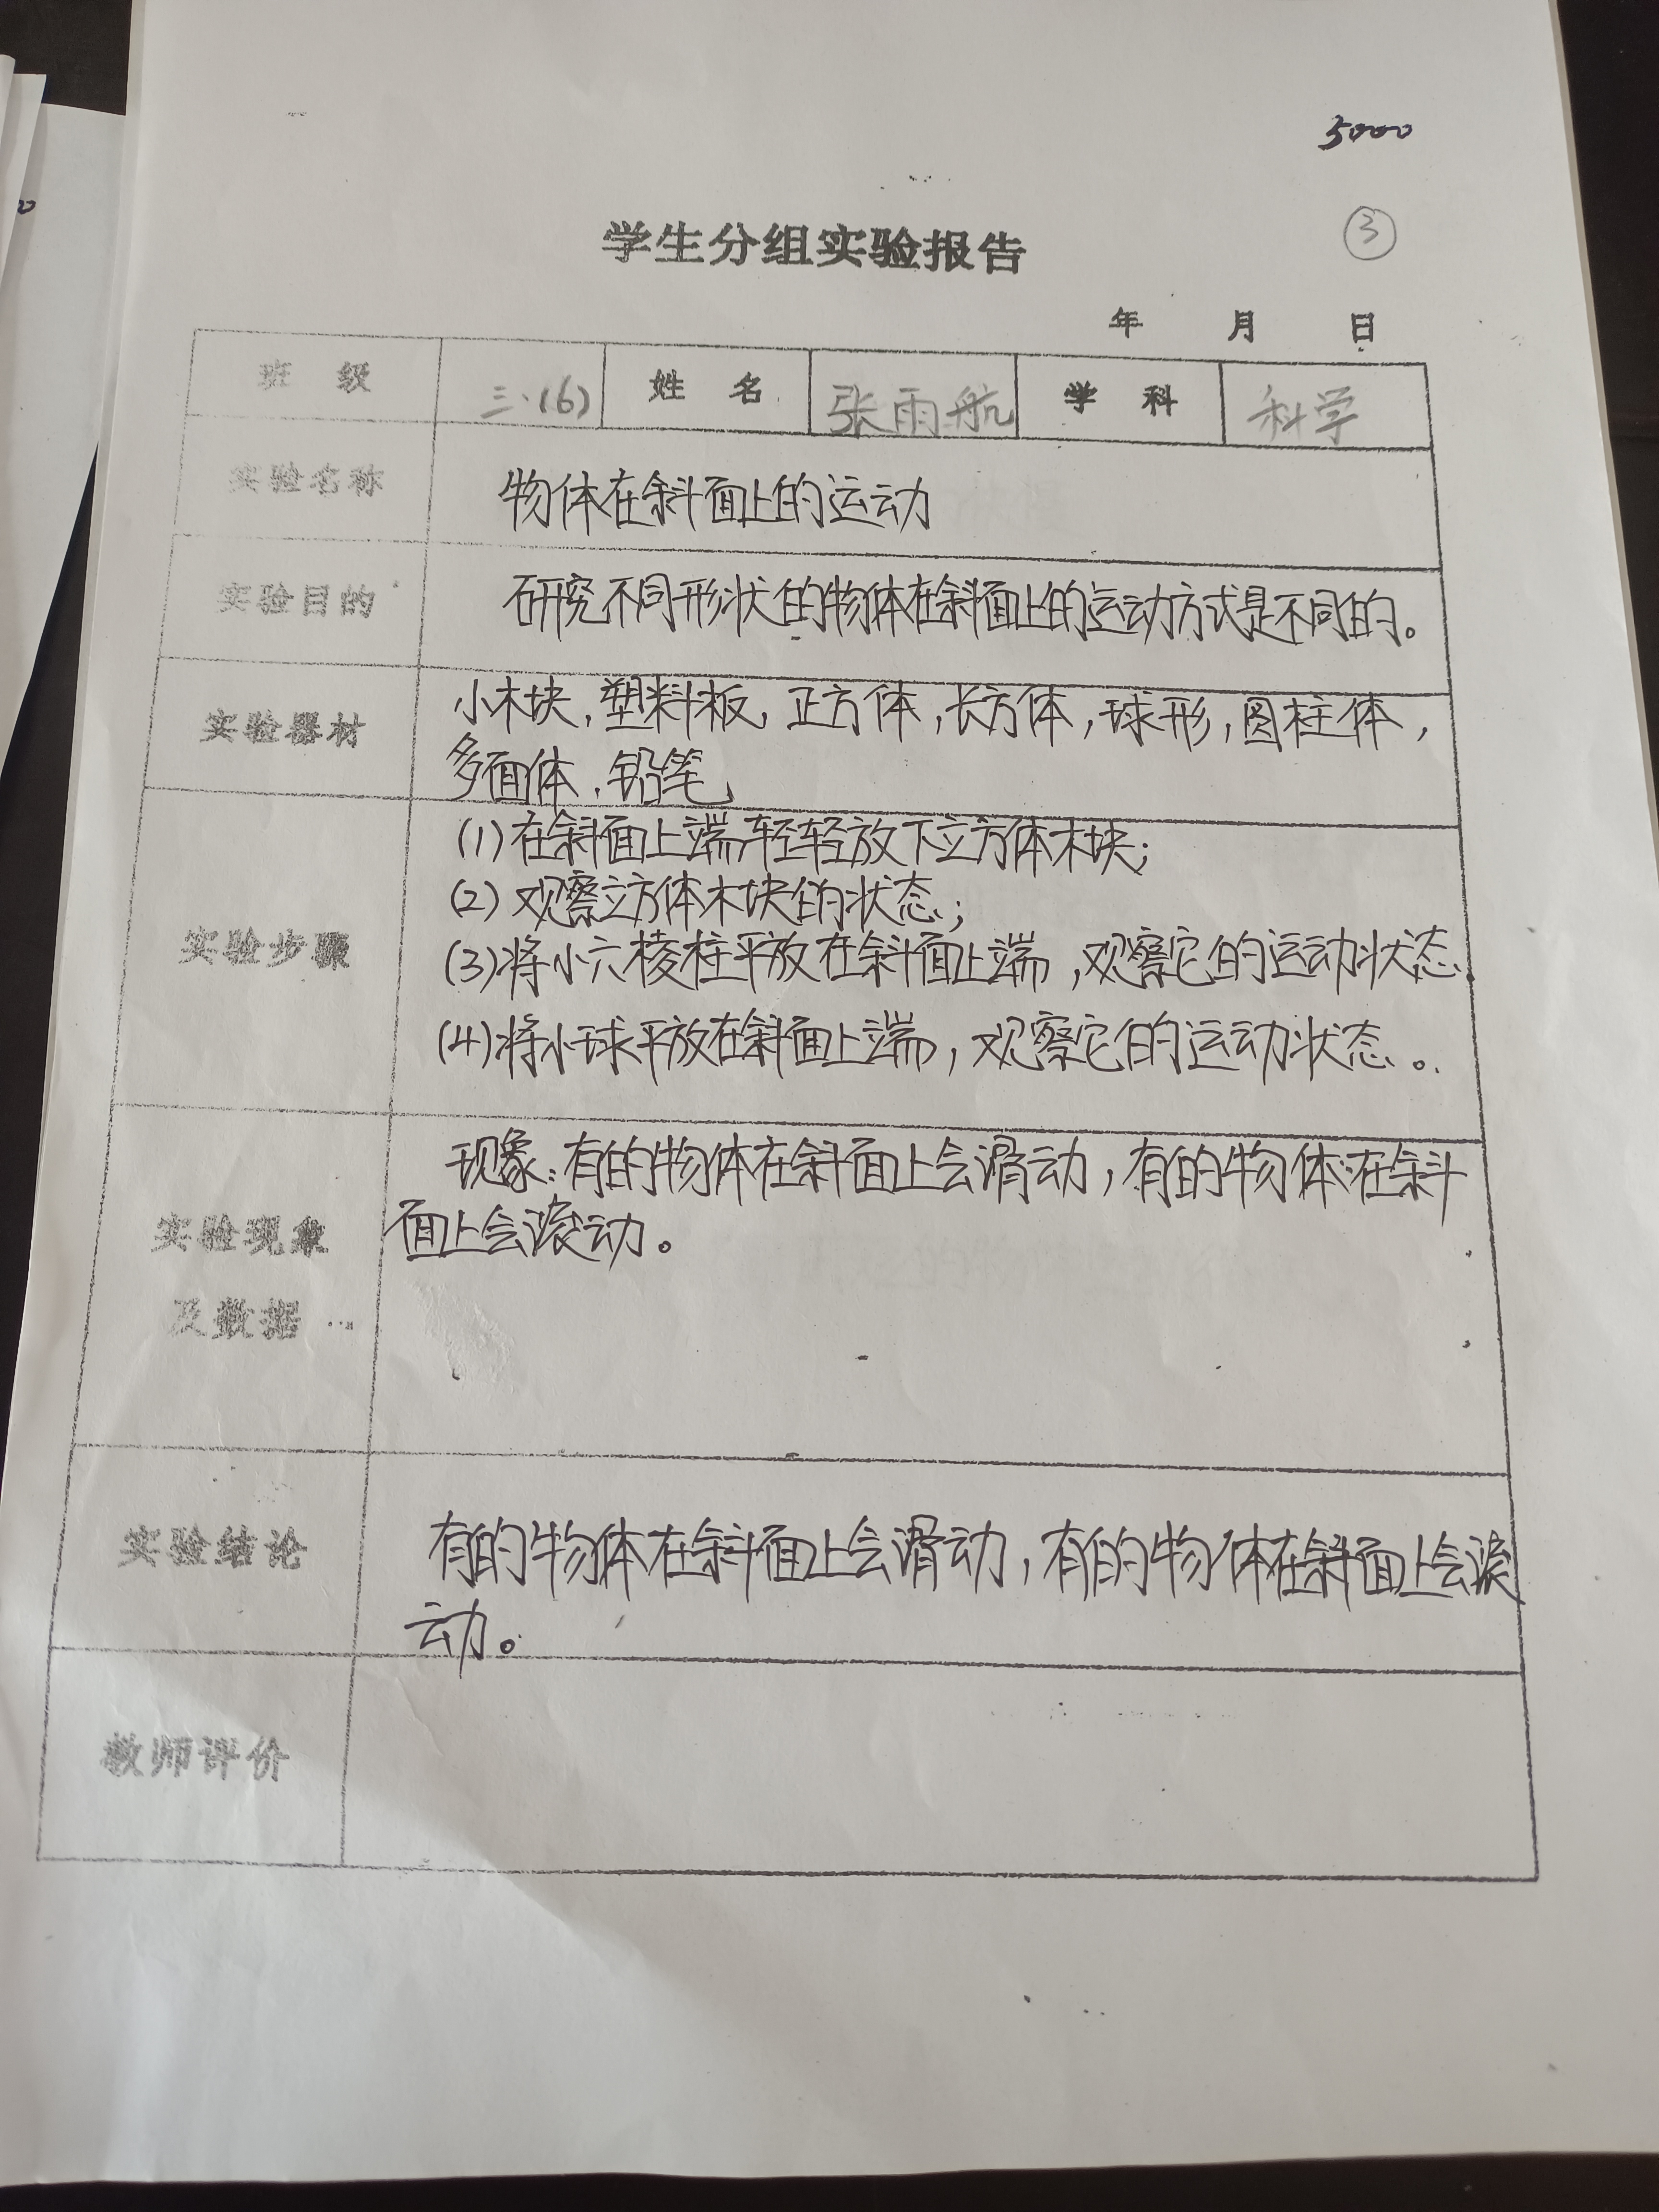 5000
③
学生分组实验报告
年 月 日
班 级 三.(6) 姓 名 张雨航 学 科 科学
实验名称 物体在斜面上的运动
实验目的 研究不同形状的物体在斜面上的运动方式是不同的。
实验器材 小木块,塑料板,正方体,长方体,球形,圆柱体,
多面体,铅笔
(1)在斜面上端轻轻放下立方体木块;
(2)观察立方体木块的状态;
实验步骤 (3)将小六棱柱平放在斜面上端,观察它的运动状态.
(4)将小球平放在斜面上端,观察它的运动状态。
现象:有的物体在斜面上会滑动,有的物体在斜
实验现象 面上会滚动。
及数据
实验结论 有的物体在斜面上会滑动,有的物体在斜面上会滚
动。
教师评价